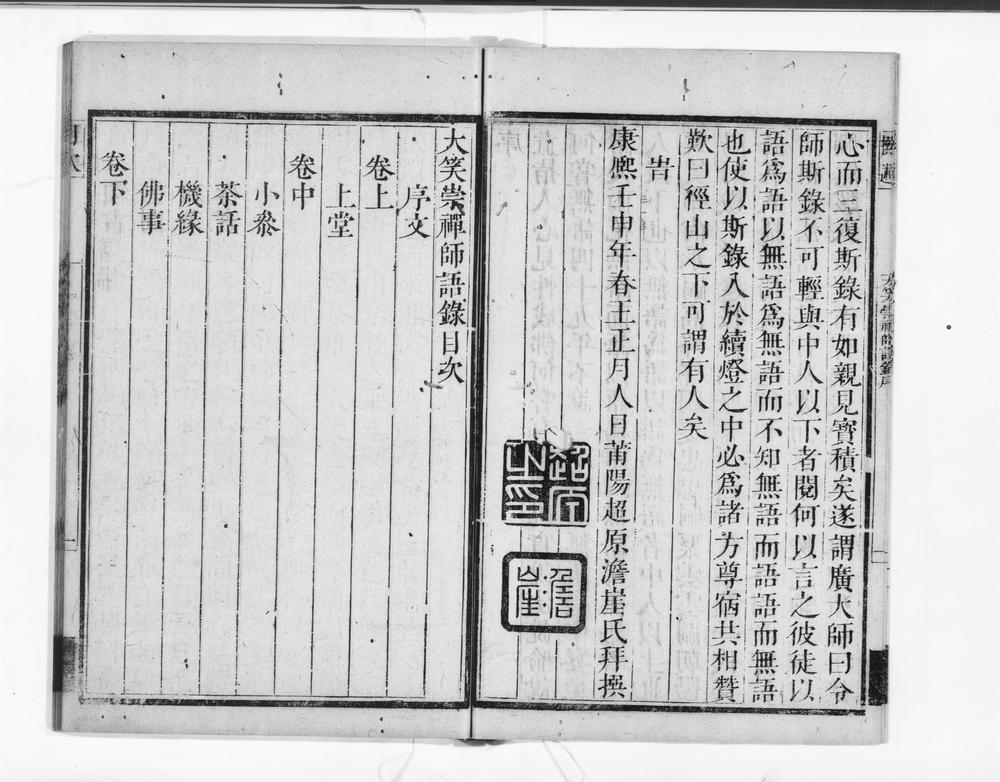 心而三復斯錄有如親見寶積矣遂謂廣大師曰令
師斯錄不可輕與中人以下者閱何以言之彼徒以
語爲語以無語爲無語而不知無語而語語而無語
也使以斯錄入於續燈之中必爲諸方尊宿共相贊
歎曰徑山之下可謂有人矣
旹
康熙壬申年春王正月人日莆陽超原澹崖氏拜撰
超原之印
澹崖
大笑崇禪師語錄目次
序文
卷上
上堂
卷中
小叅
茶話
機緣
佛事
卷下